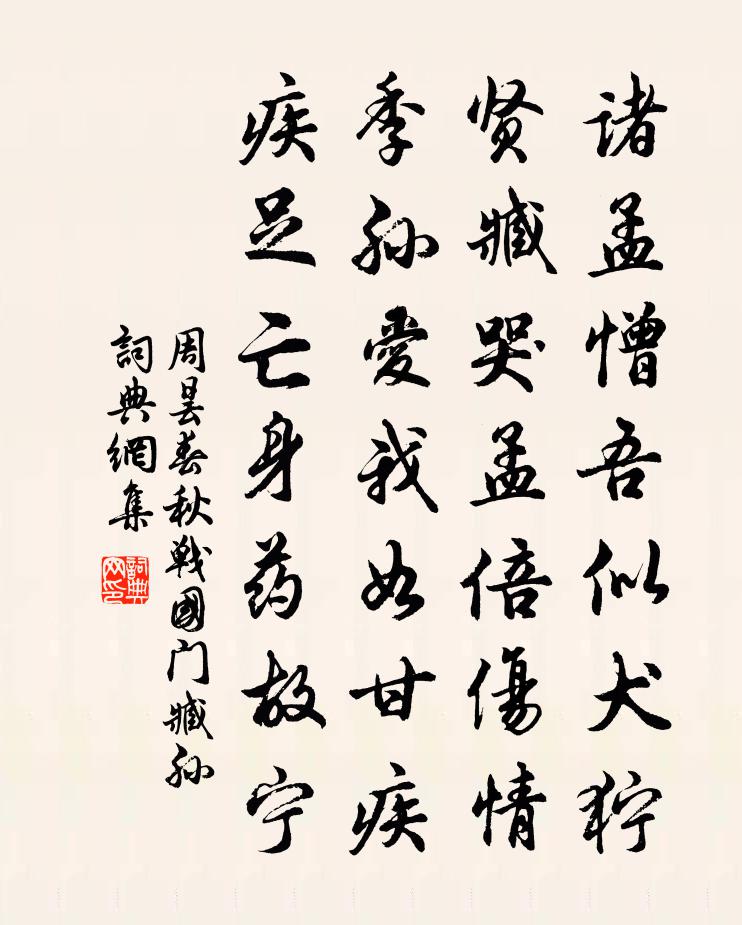 诸孟憎吾似犬狞
贤臧哭孟倍傷情
季孙愛我如甘疾
疾足亡身药故宁
周昙春秋戰國门臧孙
詞典網集
詞典网印